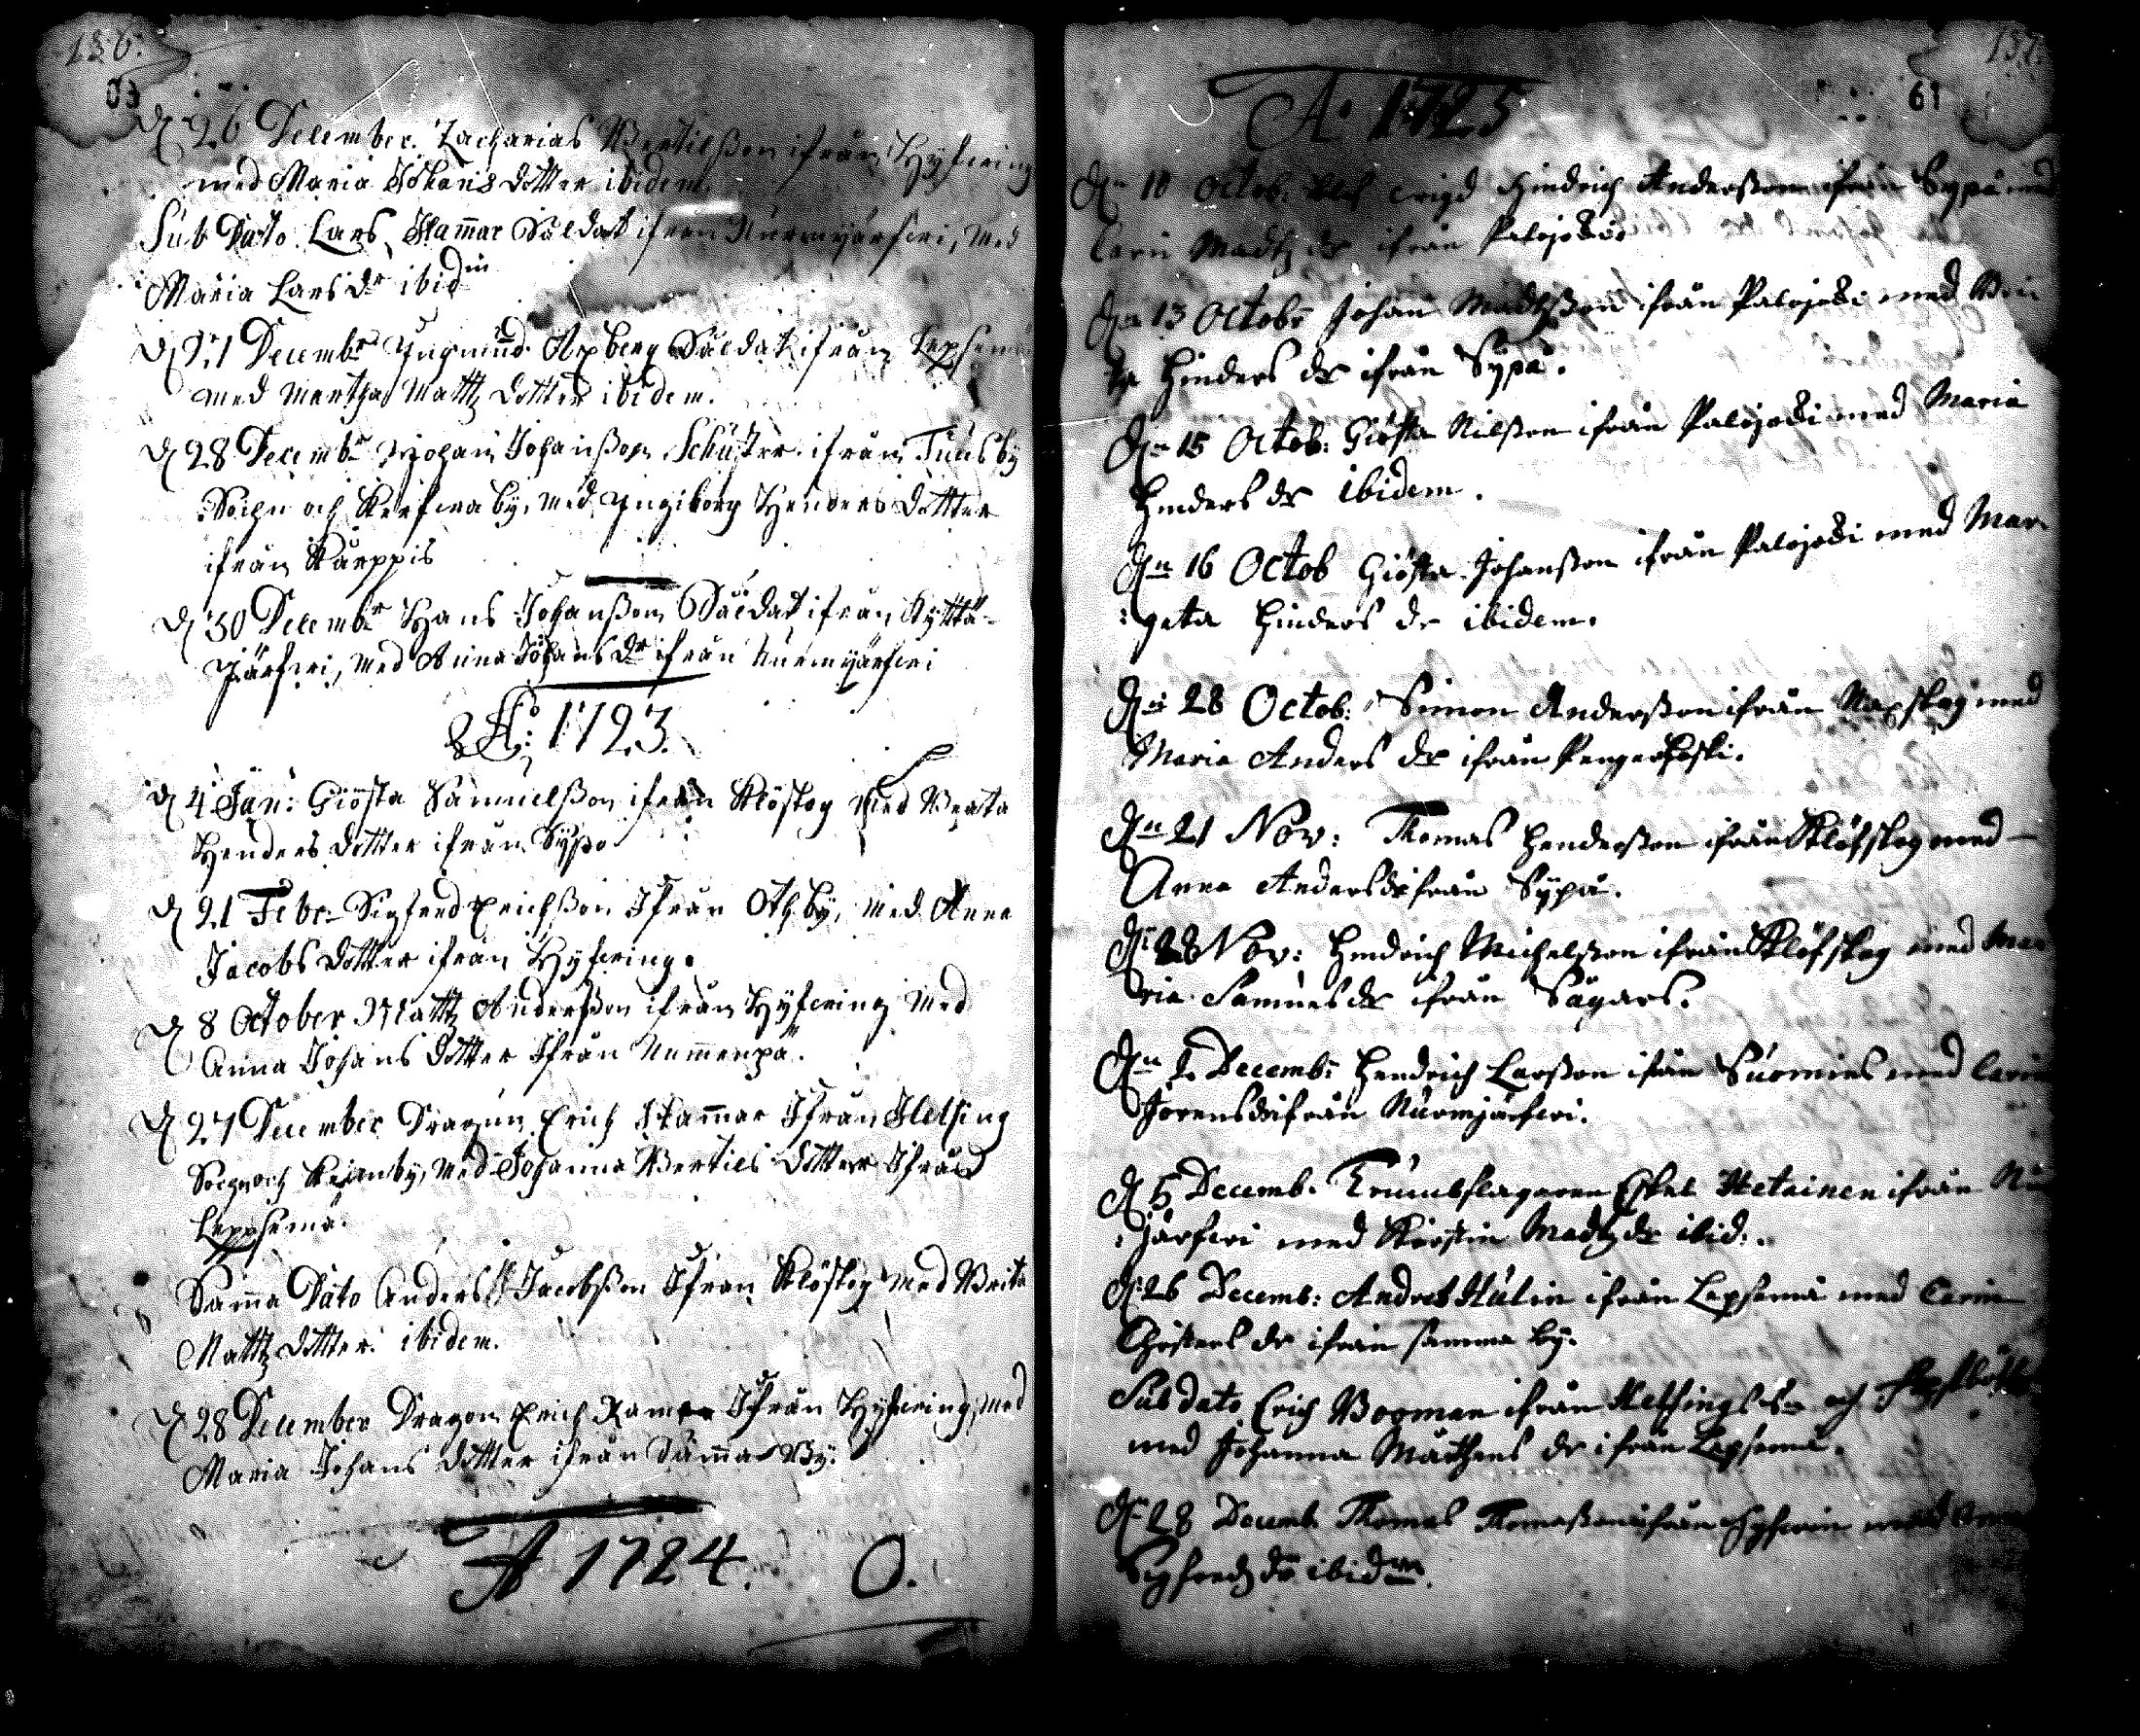 136.
D 26 December. Zacharias Bertilsson ifrån Hyfwing
med Maria Johans dotter ibidem.
Sub Dato Lars Hammar Saldat ifrån Nurmijärfwi, med
Maria Lars dr ibid:m
D 27 Decembr Yngmund Axberg Saldat ifrån Lepsemä
med Martha Mattz dotter ibidem.
D 28 Decembr Johan Johansson Schuster ifrån Tuusby
Sochn och Kerfwa by, med Yngiborg Henders dotter
ifrån Kärppis
D 30 Decembr Hans Johansson Saldat ifrån Kyttä-
Järfwi, med Anna Johans dr ifrån Nurmijärfwi
Ao: 1723.
D 4 Jan: Giösta Samuelsson ifrån Klöfskog med Beata
Henders dotter ifrån
D 21 Febr: Sigfred Erichsson Ifrån Othby, med Anna
Jacobs dotter ifrån Hyfwing.
D 8 October Mattz Andersson ifrån Hyfwing med
Anna Johans dotter Ifrån Nummenpä.
D 27 December Dragun Erich Hammar Ifrån Helsing
Sochn och by, med Johanna Bertils dotter Ifrån
Leppsema.
Samma Dato Anders Jacobsson Ifrån Klöfskog med Brita
Mattz dotter ibidem.
D 28 December Dragon Erich Ramer Ifrån Hyfwing, med
Maria Johans dotter ifrån Samma By.
A 1724. O.
137.
61
A: 1725
Dn 10 Octob: blef wigd Hindrich Andersson ifrån Sypä med
Carin Madtz dr ifrån Palojoki.
Dn 13 Octobr Johan Madtzson ifrån Palojoki med Bri
ta Hinders dr ifrån Sypä.
Dn 15 Octob: Giösta Nilsson ifrån Palojoki med Maria
Hinders dr ibidem.
Dn 16 Octob Giösta Johansson ifrån Palojoki med Mar-
:geta Hinders dr ibidem.
Dn 28 Octob: Simon Andersson ifrån Raxskog med
Maria Anders dr ifrån
Dn 21 Nov: Thomas Hendersson ifrån Klöfskog med
Anna Anders dr ifrån Sypä.
Dn Nov: Hindrich Michelsson ifrån Klöfskog med Ma
ria Samuels dr ifrån Sägars.
Dn Decemb: Hendrich Larsson ifrån Suomies med Carin
Jörens dr ifrån Nurmijärfwi.
D 5 Decemb. Trumslagaren Eskel Hetainen ifrån Nu
:järfwi med Kirstin Madtz dr ibid:.
D 26 Decemb: Andres Hulin ifrån Lepsemä med Carin
Christers dr ifrån samma by.
Sub dato Erich Boman ifrån Helsinge Sn och
med Johanna Märthens dr ifrån Lepsemä.
D 28 Decemb. Thomas Thomasson ifrån Hyfwin med
Sigfredz dr ibidm.